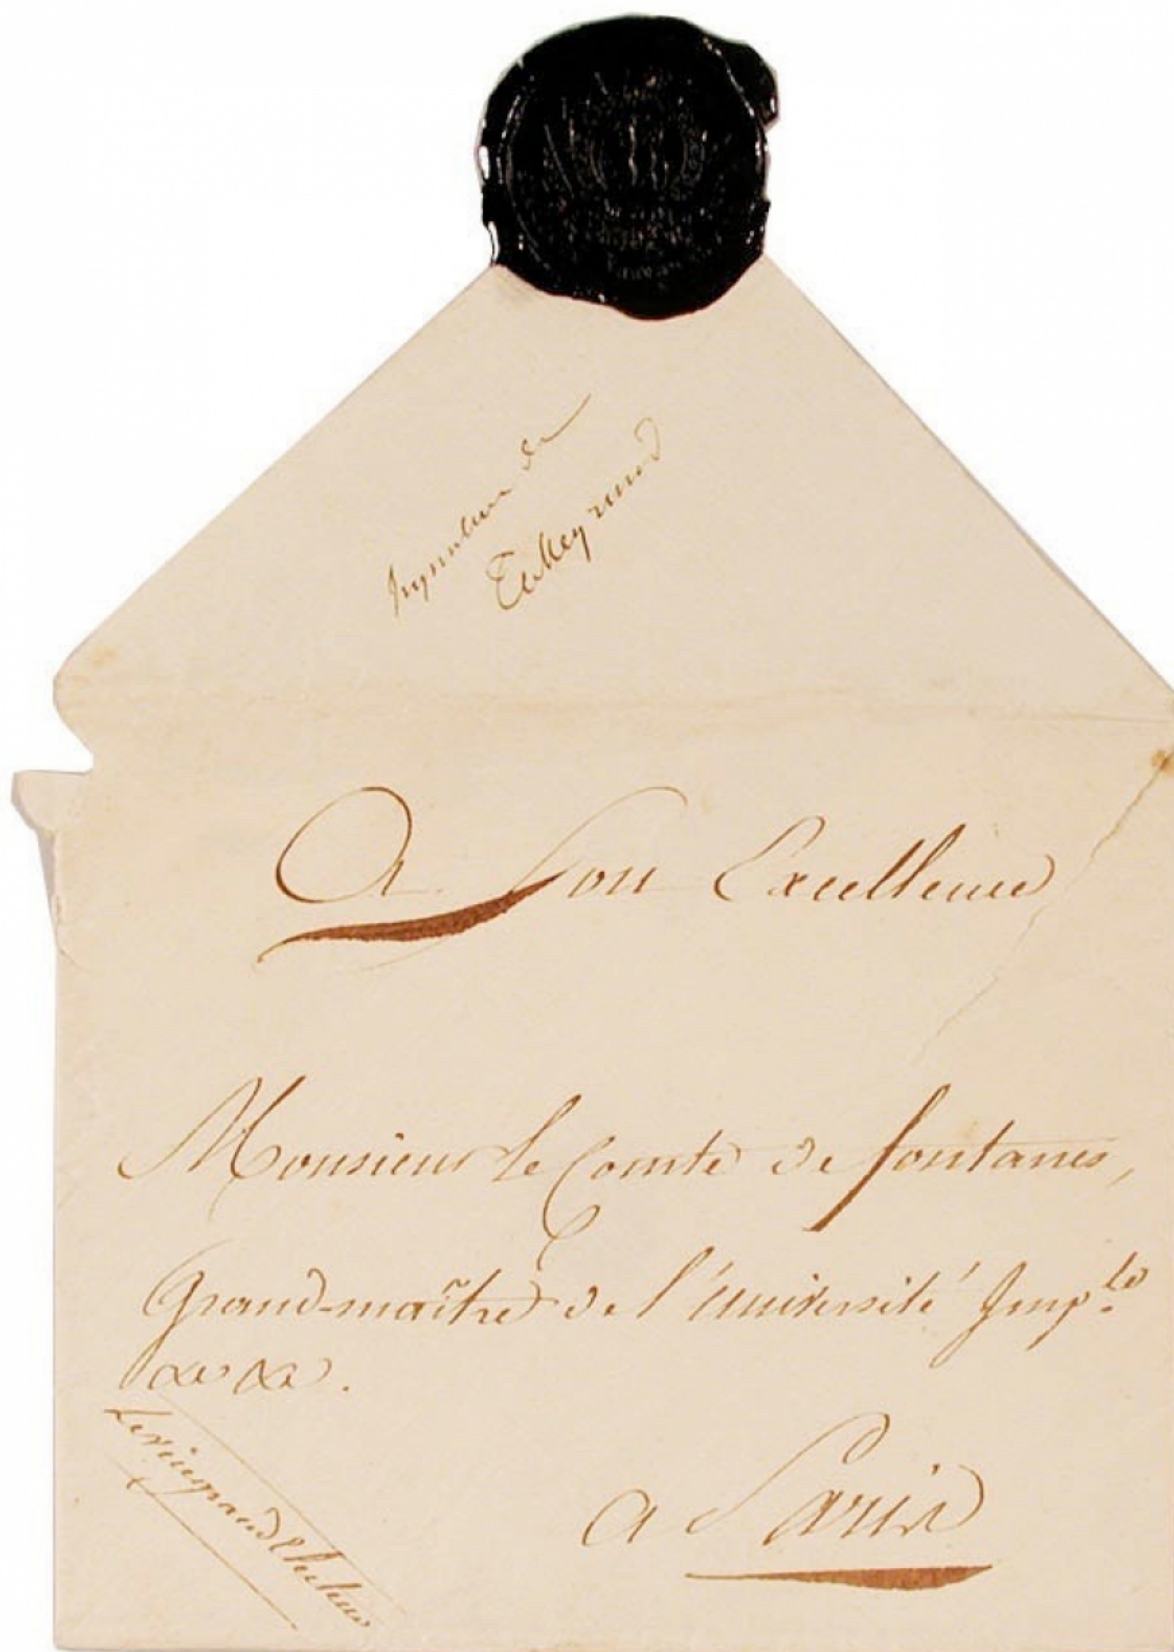 Signature de
Talleyrand
A Son Excellence
Monsieur le Comte de fontanes,
Grand-maître de l'université Imp.le
&a &a.
Le vice grand Electeur
a Paris